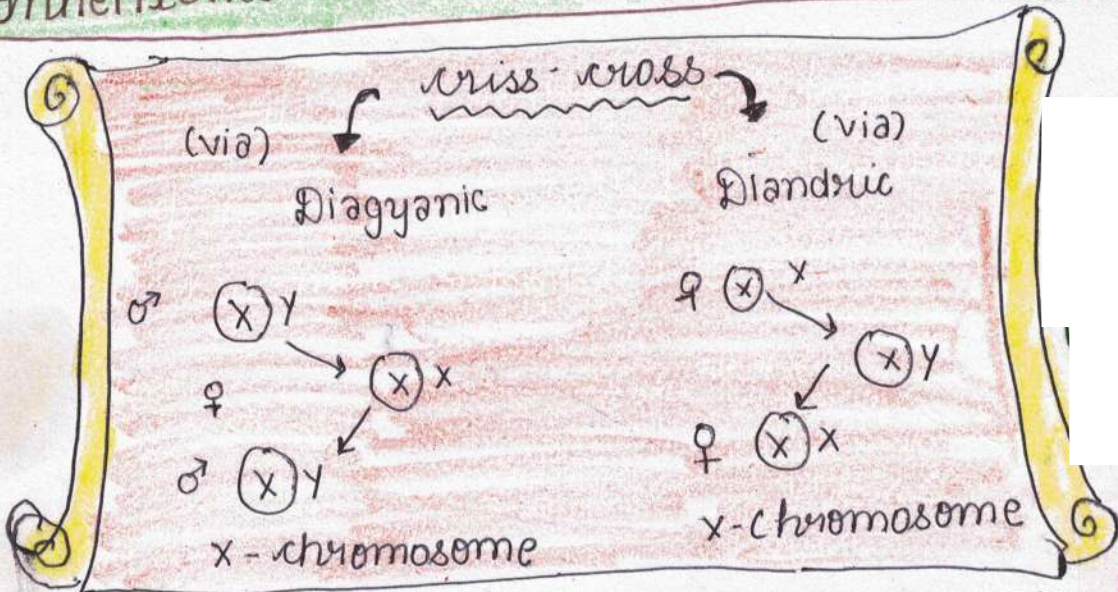 criss-cross
(via)
Diagyanic
♂ X Y
♀ X X
♂ X Y
X-chromosome
(via)
Diandric
♀ X X
X Y
♀ X X
X-chromosome